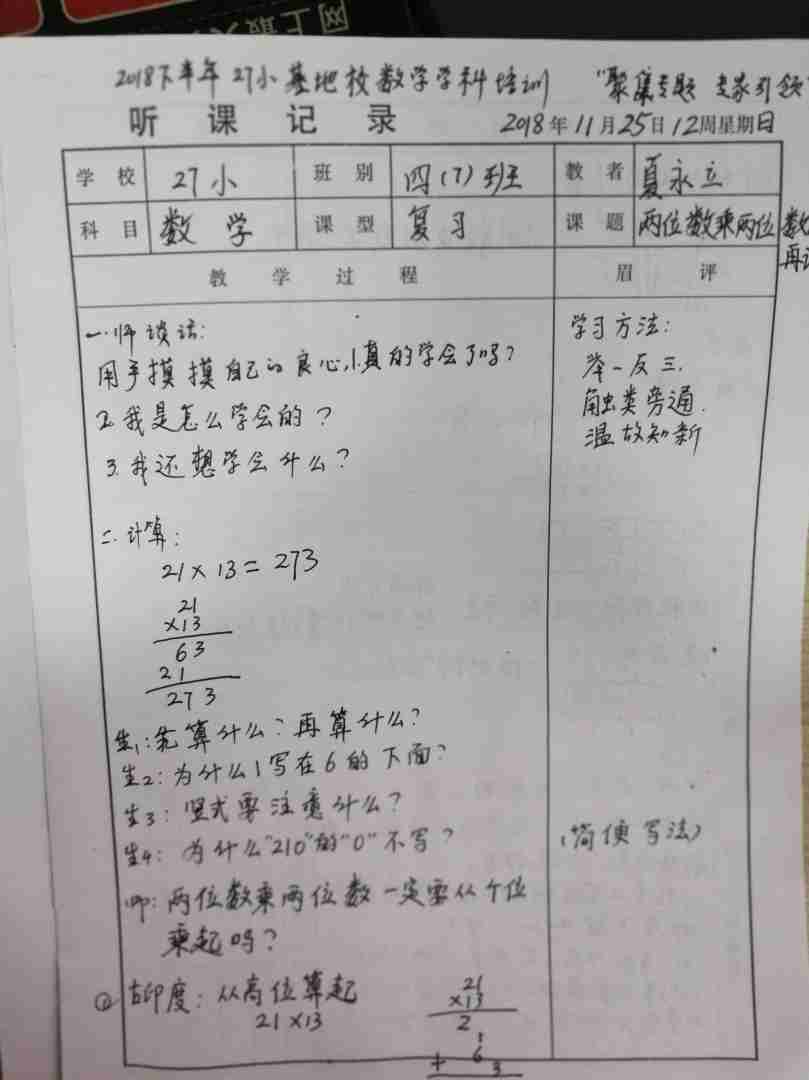 网上
2018下半年27小基地校数学学科培训 "聚焦专题 专家引领"
听课记录 2018年11月25日12周星期日
学校 27小 班别 四(7)班 教者 夏永立
科目 数学 课型 复习 课题 两位数乘两位数
再
教学过程 眉评
一.师谈话:
用手摸摸自己的良心,1.真的学会了吗?
2.我是怎么学会的?
3.我还想学会什么?
学习方法:
举一反三.
触类旁通.
温故知新
二.计算:
21×13=273
21
×13
63
21
273
生1:先算什么?再算什么?
生2:为什么1写在6的下面?
生3:竖式要注意什么?
生4:为什么"210"的"0"不写? (简便写法)
师:两位数乘两位数一定要从个位
乘起吗?
①古印度:从高位算起
21×13
21
×13
2
6
+ 3